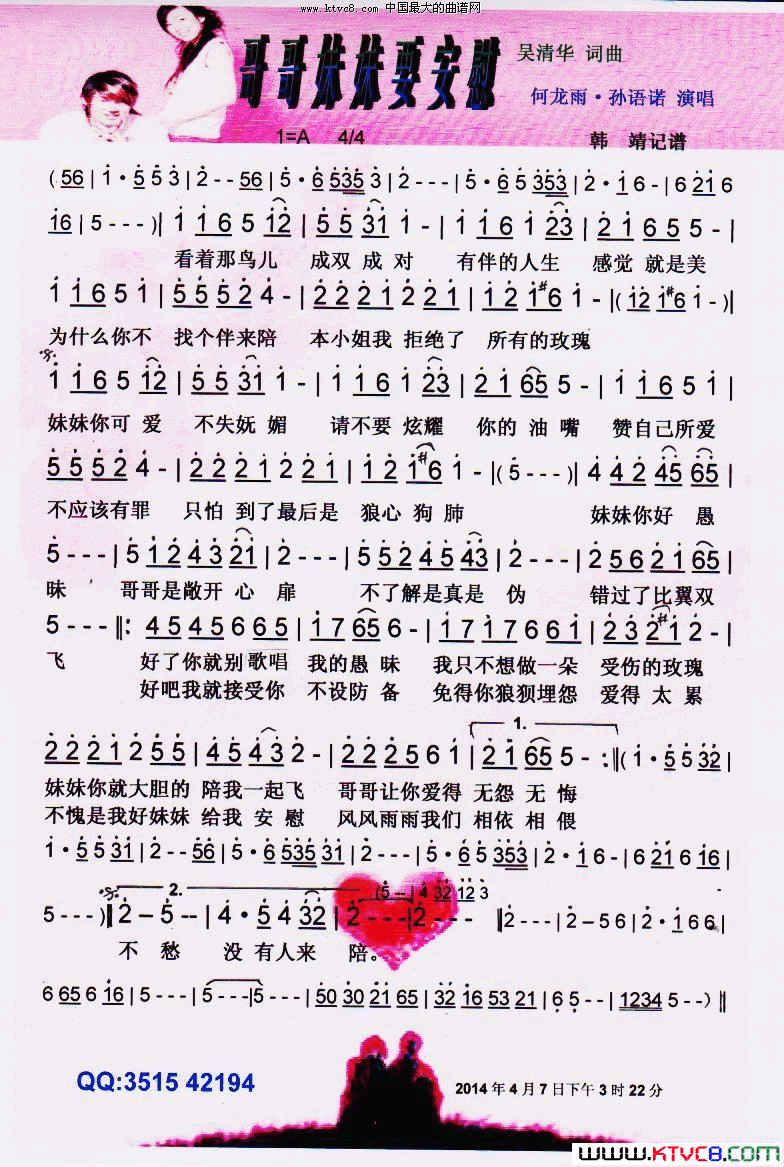 www.ktvc8.com 中国最大的曲谱网
哥哥妹妹要安慰
吴清华 词曲
何龙雨·孙语诺 演唱
1=A 4/4
韩 靖记谱
(56 | 1·553 | 2--56 | 5·65353 | 2--- | 5·65353 | 2·16- | 6216
16 | 5---)| 116512 | 55311- | 116123 | 21655- |
看着那鸟儿 成双成对 有伴的人生 感觉 就是美
11651 | 55524- | 22221221 | 121#61- |(121#61-)|
为什么你不 找个伴来陪 本小姐我 拒绝了 所有的玫瑰
116512 | 55311- | 116123 | 21655- | 11651 |
妹妹你可 爱 不失妩 媚 请不要 炫耀 你的 油嘴 赞自己所爱
55524- | 22221221 | 121#61- |(5---)| 4424565 |
不应该有罪 只怕 到了最后是 狼心 狗 肺 妹妹你好 愚
5--- | 5124321 | 2--- | 5524543 | 2--- | 25622165 |
昧 哥哥是敞开 心 扉 不了解是真是 伪 错过了比翼双
5--- ‖: 45456665 | 17656- | 17176612 | 2321#12- |
飞 好了你就别歌唱 我的愚 昧 我只不想做一朵 受伤的玫瑰
好吧我就接受你 不设防 备 免得你狼狈埋怨 爱得 太 累
1.
2221255 | 45432- | 2222561 | 21655- :‖(1·5532 |
妹妹你就大胆的 陪我一起飞 哥哥让你爱得 无怨 无 悔
不愧是我好妹妹 给我 安 慰 风风雨雨我们 相依 相 偎
1·5531 | 2--56 | 5·653531 | 2--- | 5·65353 | 2·16- | 621616 |
2. (5-- | 432123
5---)‖ 2-5-- | 4·5432 | 2--- | 2--- ‖ 2--- | 5-56 | 2·166 |
不 愁 没 有人来 陪。
665616 | 5--- | 5--- | 5--- | 50302165 | 32165321 | 65-- | 12345--)‖
QQ:3515 42194
2014年4月7日下午3时22分
www.KTVC8.com